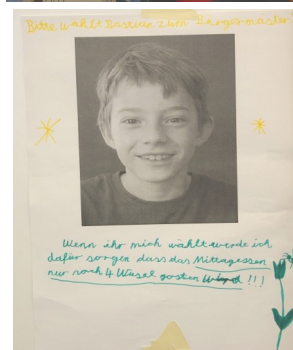 Bitte wählt Bastian zum Bürgermeister
Wenn ihr mich wählt werde ich
dafür sorgen dass das Mittagessen
nur noch 4 Wasel gosten !!!